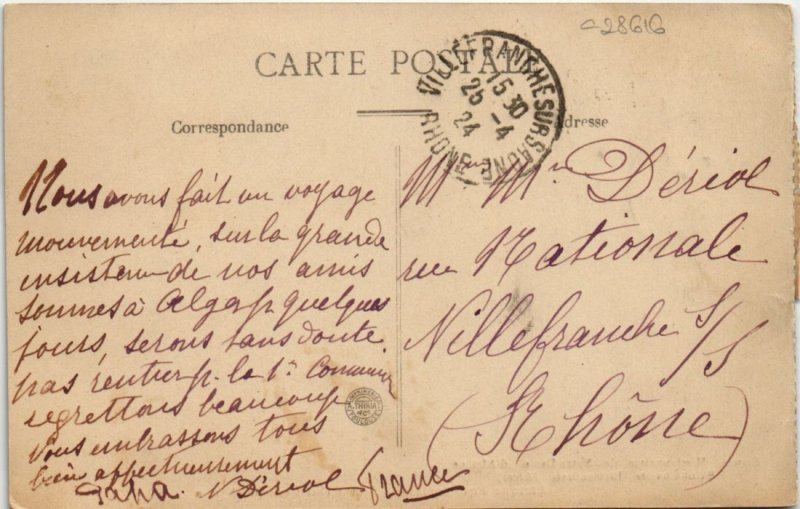 c28616
CARTE POSTALE
VILLEFRANCHE SUR SAONE
15 30
25 -4
24
RHONE
Correspondance
Adresse
Nous avons fait un voyage
mouvementé, sur la grande
insistence de nos amis
sommes à Alger pr quelques
jours, serons sans doute
pas rentrer p. la 1re Commun
regrettons beaucoup
Vous embrassons tous
bien affectueusement
N Dériol France
Mr Mme Dériol
rue Nationale
Villefranche s/S
(Rhône)